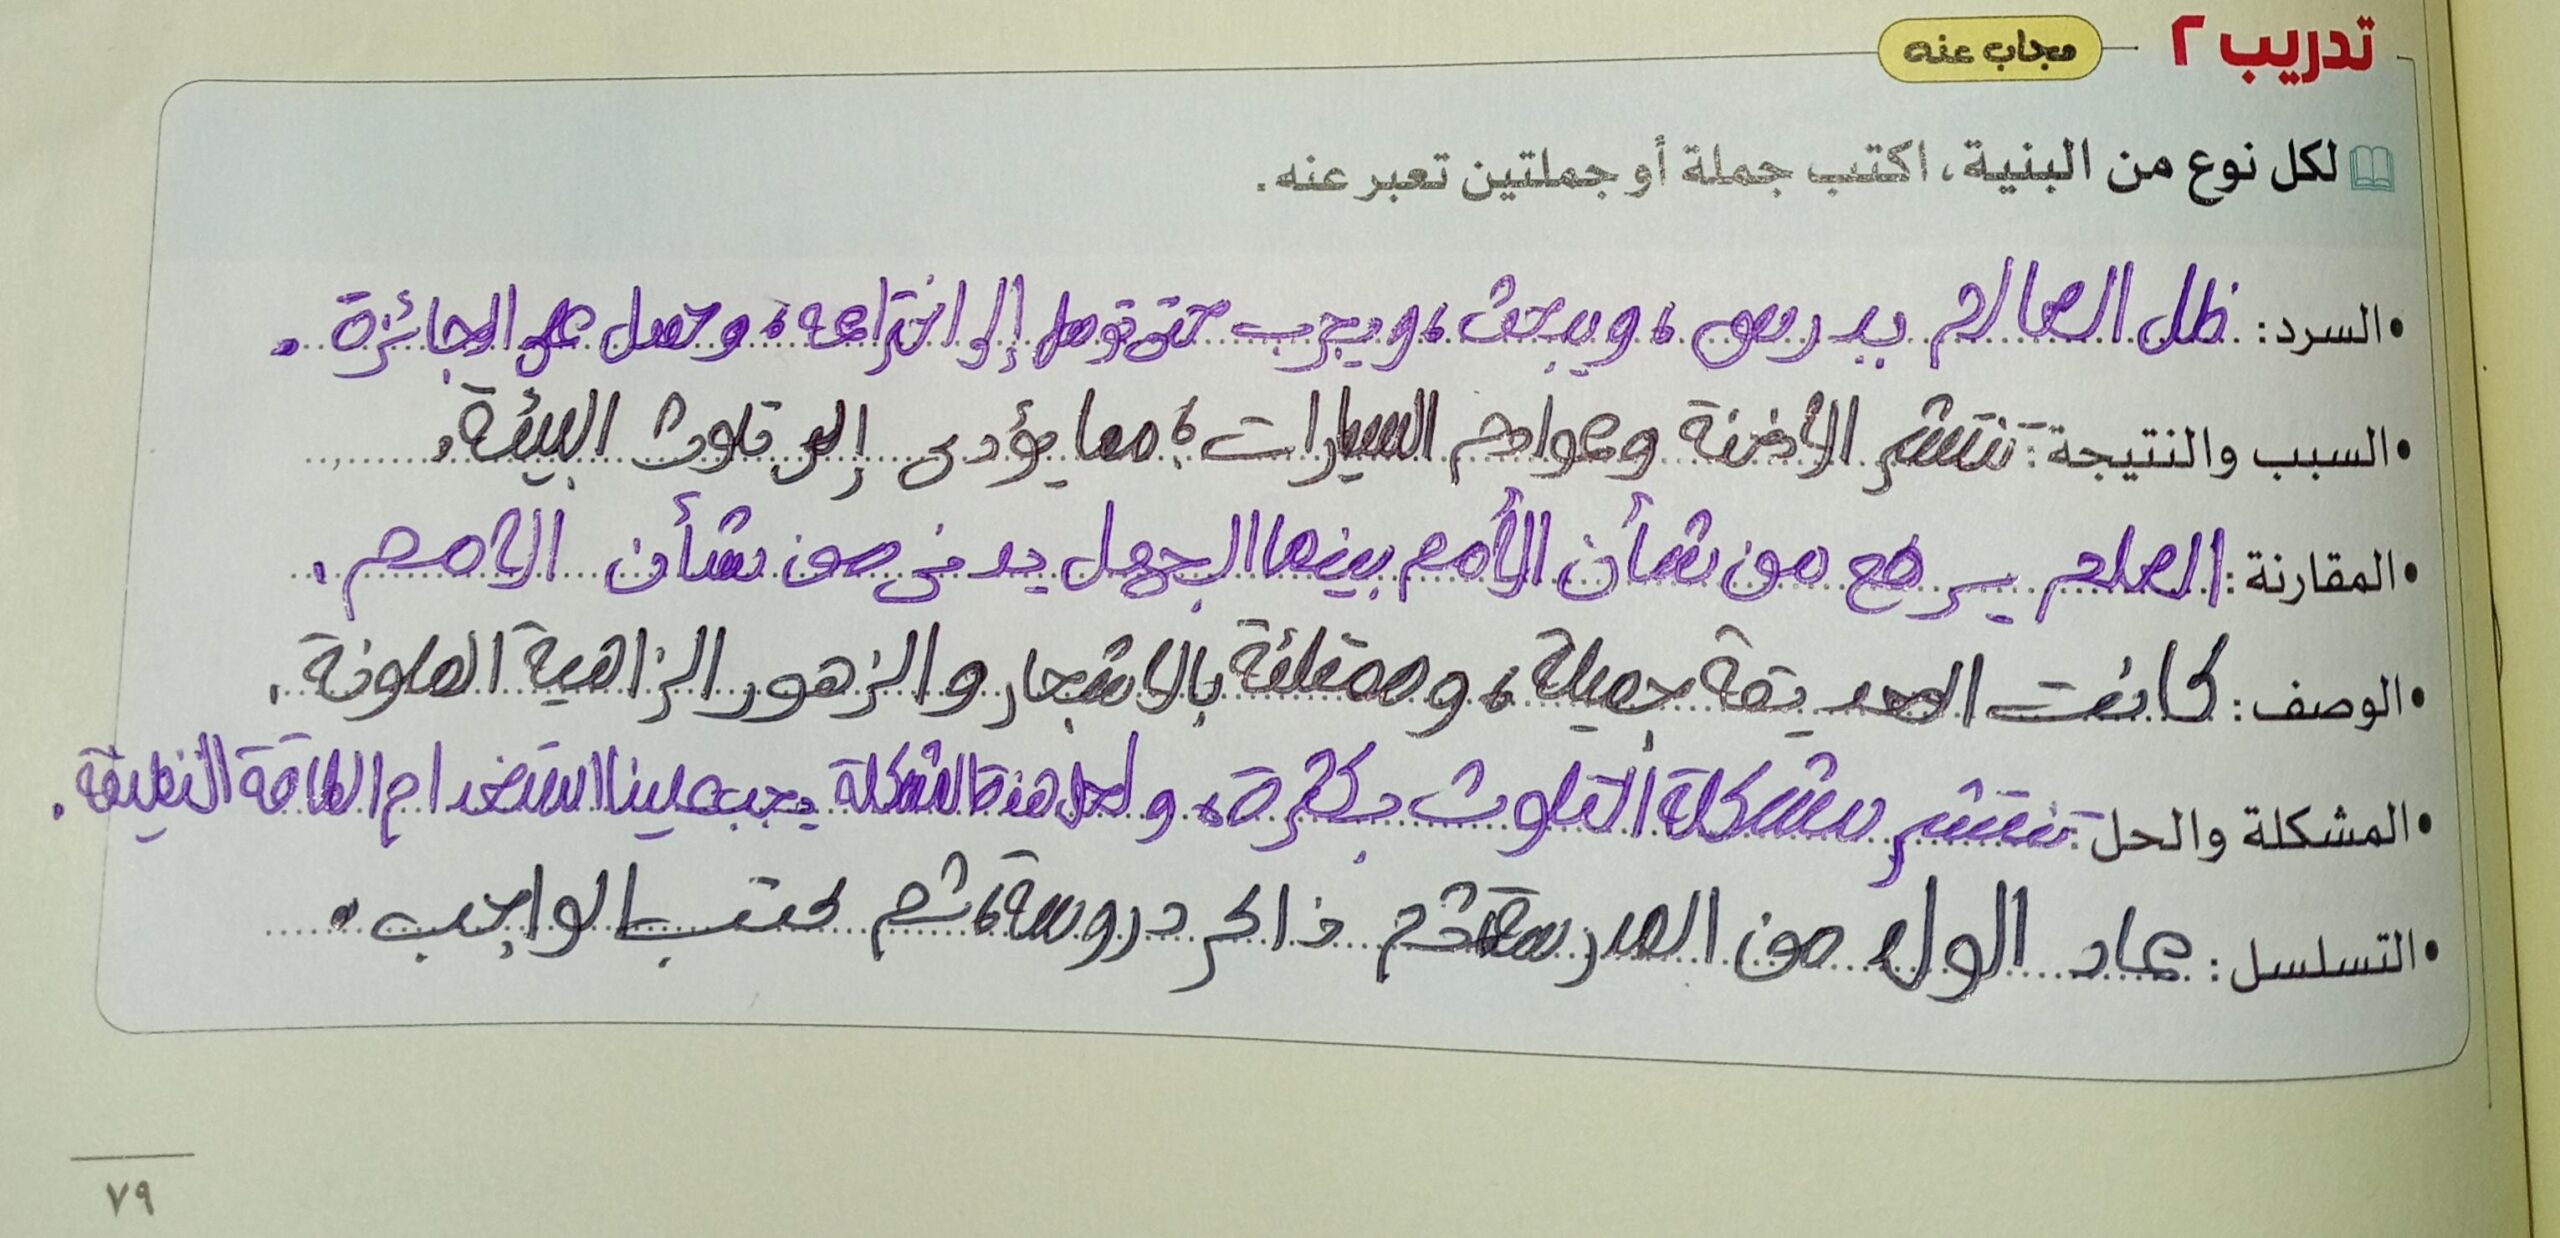 تدريب ٢ مجاب عنه
لكل نوع من البنية، اكتب جملة أو جملتين تعبر عنه.
• السرد: ظل العالم يدرس، ويبحث، ويجرب حتى توصل إلى اختراعه، وحصل على الجائزة.
• السبب والنتيجة: تنتشر الأدخنة وعوادم السيارات؛ مما يؤدى إلى تلوث البيئة.
• المقارنة: العلم يرفع من شأن الأمم بينما الجهل يدنى من شأن الامم.
• الوصف: كانت الحديقة جميلة، وممتلئة بالاشجار والزهور الزاهية الملونة.
• المشكلة والحل: تنتشر مشكلة التلوث بكثرة، ولحل هذة المشكلة يجب علينا استخدام الطاقة النظيفة.
• التسلسل: عاد الولد من المدرسة ثم ذاكر دروسة، ثم كتب الواجب.
٧٩